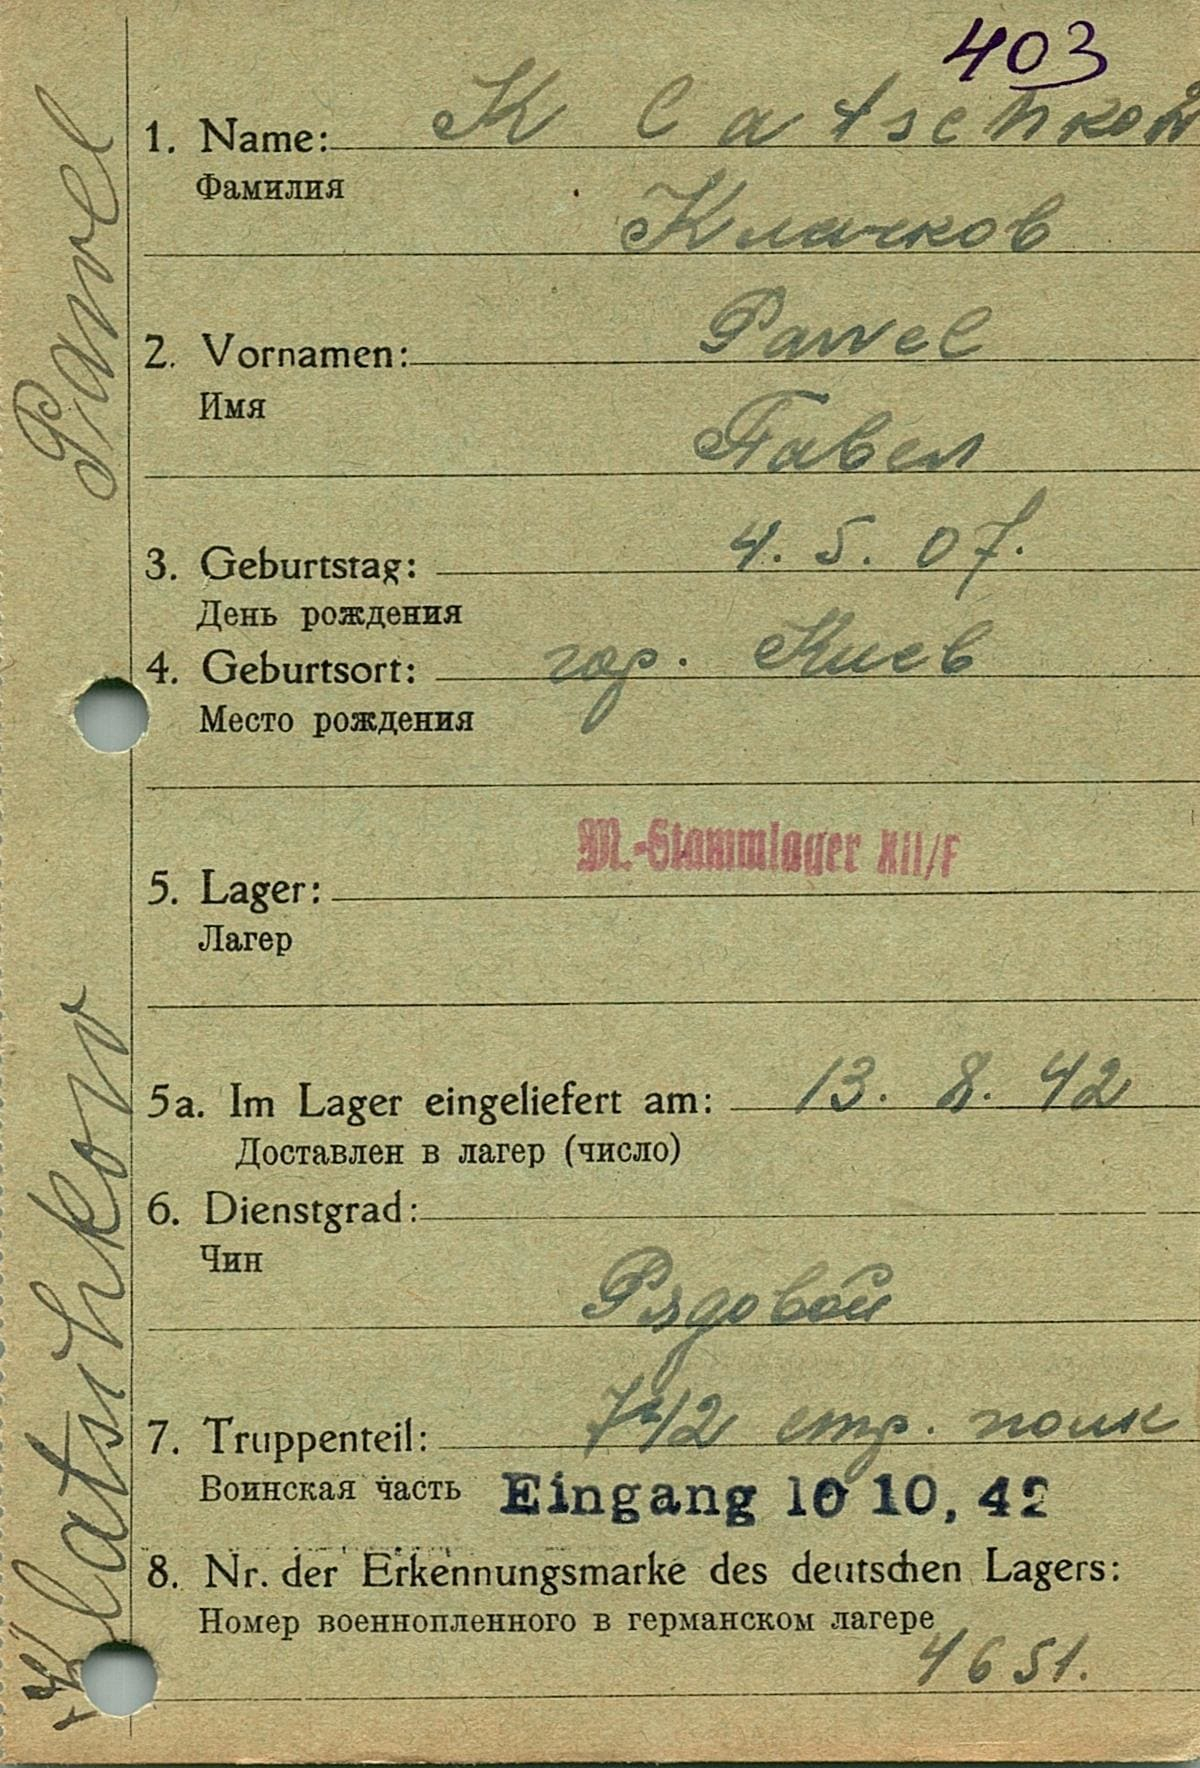 403
1. Name: Klatschkow
Фамилия
Клачков
2. Vornamen: Pawel
Имя
Павел
3. Geburtstag: 4. 5. 07.
День рождения
4. Geburtsort: гор. Киев
Место рождения
M.-Stammlager XII/F
5. Lager:
Лагер
5a. Im Lager eingeliefert am: 13. 8. 42
Доставлен в лагер (число)
6. Dienstgrad:
Чин
Рядовой
7. Truppenteil: 742 стр. полк
Воинская часть
Eingang 10 10, 42
8. Nr. der Erkennungsmarke des deutschen Lagers:
Номер военнопленного в германском лагере
4651.
Klatschkow Pawel